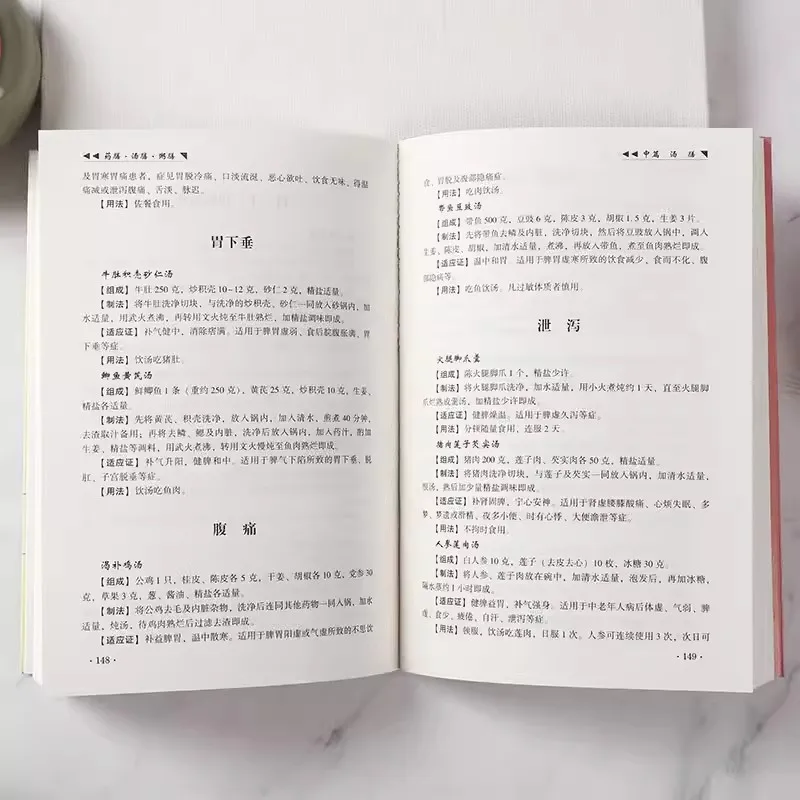 药膳·汤膳·粥膳
及胃寒胃痛患者，症见胃脘冷痛、口淡流涎、恶心欲吐、饮食无味、得温
痛减或泄泻腹痛、舌淡、脉迟。
【用法】佐餐食用。
胃下垂
牛肚枳壳砂仁汤
【组成】牛肚250克，炒枳壳10~12克，砂仁2克，精盐适量。
【制法】将牛肚洗净切块，与洗净的炒枳壳、砂仁一同放入砂锅内，加
水适量，用武火煮沸，再转用文火炖至牛肚熟烂，加精盐调味即成。
【适应证】补气健中，消除痞满。适用于脾胃虚弱、食后脘腹胀满、胃
下垂等症。
【用法】饮汤吃猪肚。
鲫鱼黄芪汤
【组成】鲜鲫鱼1条（重约250克），黄芪25克，炒枳壳10克，生姜、
精盐各适量。
【制法】先将黄芪、枳壳洗净，放入锅内，加入清水，煎煮40分钟，
去渣取汁备用，再将去鳞、鳃及内脏，洗净后放入锅内，加入药汁，酌加
生姜、精盐等调料，用武火煮沸，转用文火慢炖至鱼肉熟烂即成。
【适应证】补气升阳，健脾和中。适用于脾气下陷所致的胃下垂、脱
肛、子宫脱垂等症。
【用法】饮汤吃鱼肉。
腹 痛
温补鸡汤
【组成】公鸡1只，桂皮、陈皮各5克，干姜、胡椒各10克，党参30
克，草果3克，葱、酱油、精盐各适量。
【制法】将公鸡去毛及内脏杂物，洗净后连同其他药物一同入锅，加水
适量，炖汤，待鸡肉熟烂后过滤去渣即成。
【适应证】补益脾胃，温中散寒。适用于脾胃阳虚或气虚所致的不思饮
·148·
中篇 汤 膳
食、胃脘及腹部隐痛症。
【用法】吃肉饮汤。
带鱼豆豉汤
【组成】带鱼500克，豆豉6克，陈皮3克，胡椒1.5克，生姜3片。
【制法】先将带鱼去鳞及内脏，洗净切块，然后将豆豉放入锅中，调入
生姜、陈皮、胡椒，加清水适量，煮沸，再放入带鱼，煮至鱼肉熟烂即成。
【适应证】温中和胃。适用于脾胃虚寒所致的饮食减少、食而不化、腹
部隐痛等。
【用法】吃鱼饮汤。凡过敏体质者慎用。
泄 泻
火腿脚爪羹
【组成】陈火腿脚爪1个，精盐少许。
【制法】将火腿脚爪洗净，加水适量，用小火煮炖约1天，直至火腿脚
爪烂熟或羹汤，加精盐少许即成。
【适应证】健脾燥湿。适用于脾虚久泻等症。
【用法】分顿随量食用，连服2天。
猪肉莲子芡实汤
【组成】猪肉200克，莲子肉、芡实肉各50克，精盐适量。
【制法】将猪肉洗净切块，与莲子及芡实一同放入锅内，加清水适量，
煲汤，熟后加少量精盐调味即成。
【适应证】补肾固脾，宁心安神。适用于肾虚腰膝酸痛、心烦失眠、多
梦、梦遗或滑精、夜多小便、时有心悸、大便溏泄等症。
【用法】不拘时食用。
人参莲肉汤
【组成】白人参10克，莲子（去皮去心）10枚，冰糖30克。
【制法】将人参、莲子肉放在碗中，加清水适量，泡发后，再加冰糖，
隔水蒸约1小时即成。
【适应证】健脾益胃，补气强身。适用于中老年人病后体虚、气弱、脾
虚、食少、疲倦、自汗、泄泻等症。
【用法】顿服，饮汤吃莲肉，日服1次。人参可连续使用3次，次日可
·149·